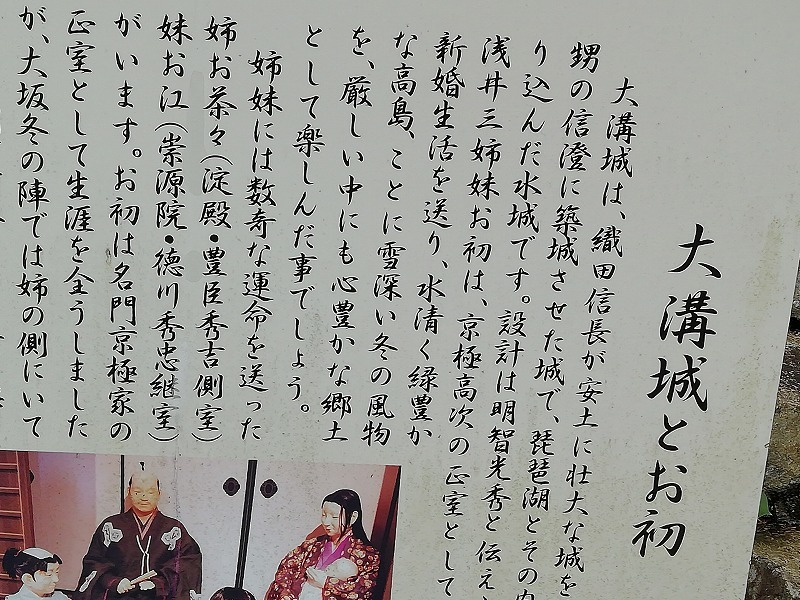 大溝城とお初
大溝城は、織田信長が安土に壮大な城を
甥の信澄に築城させた城で、琵琶湖とその内
り込んだ水城です。設計は明智光秀と伝え
浅井三姉妹お初は、京極高次の正室として
新婚生活を送り、水清く緑豊か
な高島、ことに雪深い冬の風物
を、厳しい中にも心豊かな郷土
として楽しんだ事でしょう。
姉妹には数奇な運命を送った
姉お茶々(淀殿・豊臣秀吉側室)
妹お江(崇源院・徳川秀忠継室)
がいます。お初は名門京極家の
正室として生涯を全うしました
が、大坂冬の陣では姉の側にいて